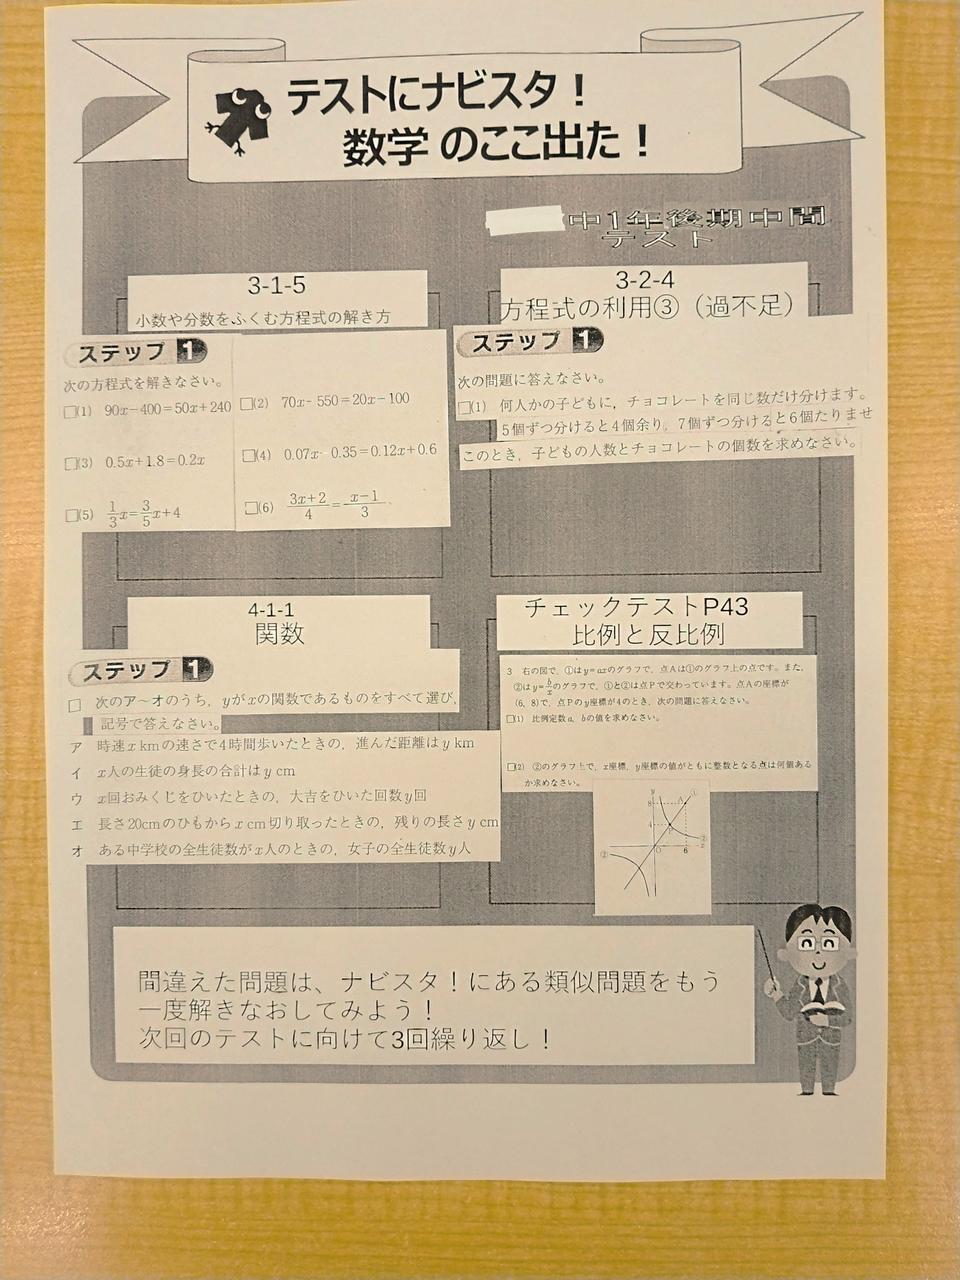 テストにナビスタ！
数学 のここ出た！
中1年後期中間
テスト
3-1-5
小数や分数をふくむ方程式の解き方
ステップ 1
次の方程式を解きなさい。
□(1) 90x−400=50x+240
□(2) 70x−550=20x−100
□(3) 0.5x+1.8=0.2x
□(4) 0.07x−0.35=0.12x+0.6
□(5) 1/3x=3/5x+4
□(6) 3x+2/4=x−1/3
3-2-4
方程式の利用③（過不足）
ステップ 1
次の問題に答えなさい。
□(1) 何人かの子どもに，チョコレートを同じ数だけ分けます。
5個ずつ分けると4個余り，7個ずつ分けると6個たりませ
このとき，子どもの人数とチョコレートの個数を求めなさい。
4-1-1
関数
ステップ 1
□ 次のア〜オのうち，yがxの関数であるものをすべて選び，
記号で答えなさい。
ア 時速x kmの速さで4時間歩いたときの，進んだ距離はy km
イ x人の生徒の身長の合計はy cm
ウ x回おみくじをひいたときの，大吉をひいた回数y回
エ 長さ20cmのひもからx cm切り取ったときの，残りの長さy cm
オ ある中学校の全生徒数がx人のときの，女子の全生徒数y人
チェックテストP43
比例と反比例
3 右の図で，①はy=axのグラフで，点Aは①のグラフ上の点です。また，
②はy=b/xのグラフで，①と②は点Pで交わっています。点Aの座標が
(6, 8)で，点Pのy座標が4のとき，次の問題に答えなさい。
□(1) 比例定数a，bの値を求めなさい。
□(2) ②のグラフ上で，x座標，y座標の値がともに整数となる点は何個ある
か求めなさい。
y
①
8
A
4
P
②
x
O
6
②
間違えた問題は、ナビスタ！にある類似問題をもう
一度解きなおしてみよう！
次回のテストに向けて3回繰り返し！